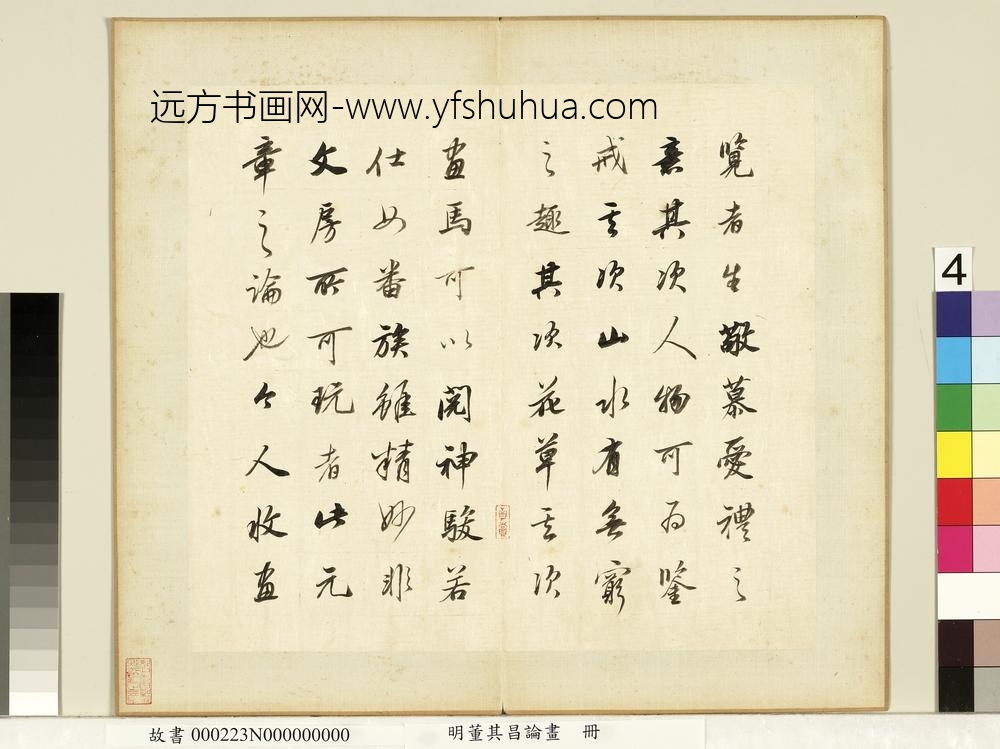 远方书画网-www.yfshuhua.com
覽者生敬慕愛禮之
意其次人物可為鑒
戒其次山水有無窮
之趣其次花草其次
畫馬可以閱神駿若
仕女番族雖精妙非
文房所可玩者此元
章之論也今人收畫
4
故書 000223N000000000
明董其昌論畫 冊